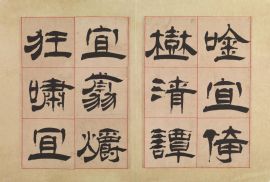 唫宜倚
樹清譚
宜翦爥
狂嘯宜